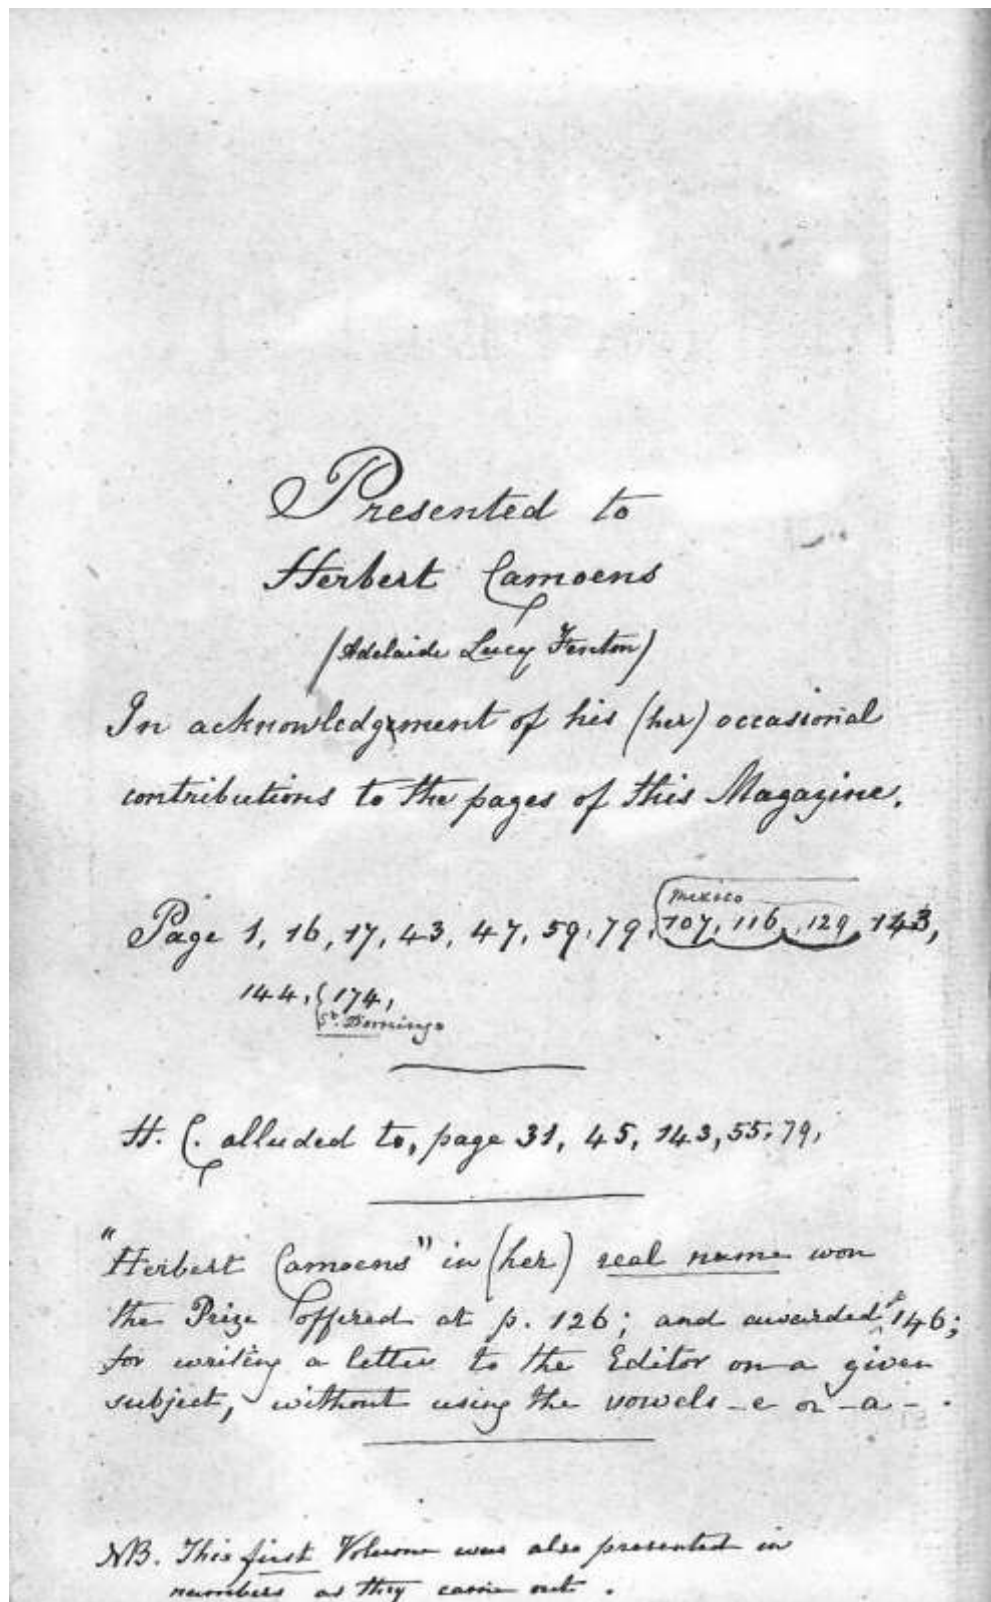 Presented to
Herbert Camoens
(Adelaide Lucy Fenton)
In acknowledgement of his (her) occasional
contributions to the pages of this Magazine.
Mexico
Page 1, 16, 17, 43, 47, 59, 79, 107, 116, 129, 143,
144, 174,
St. Domingo
H. C. alluded to, page 31, 45, 143, 55, 79,
"Herbert Camoens" in (her) real name won
the Prize offered at p. 126; and awarded p 146;
for writing a letter to the Editor on a given
subject, without using the vowels - e or - a - .
NB. This first Volume was also presented in
numbers as they came out.